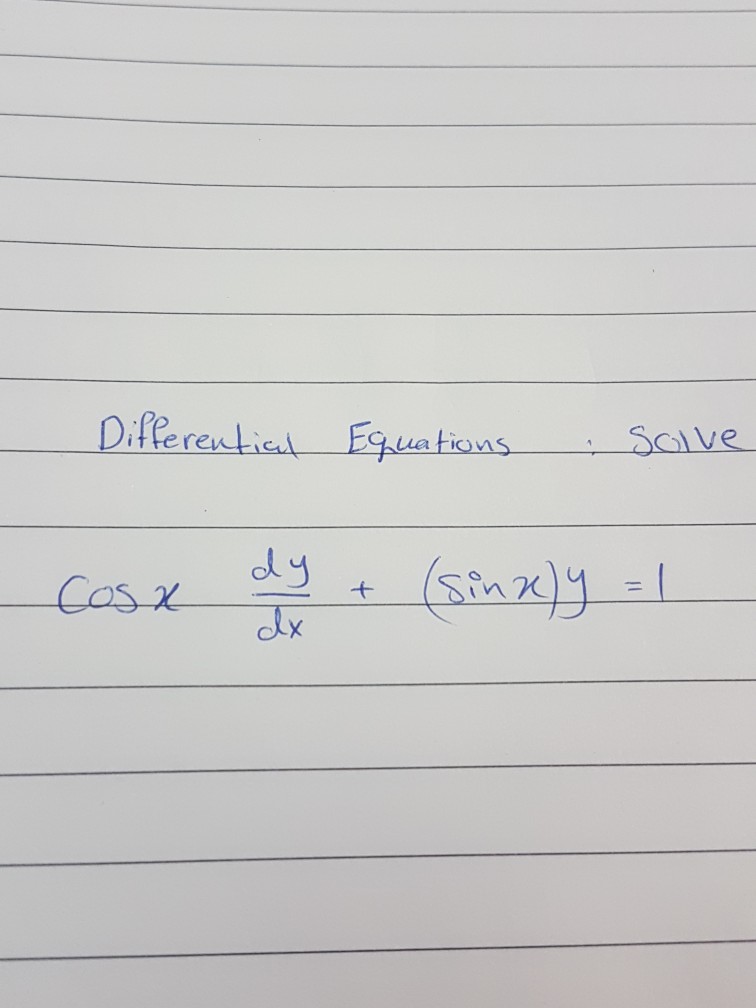 Differential Equations : Solve
Cos x dy/dx + (sin x)y = 1